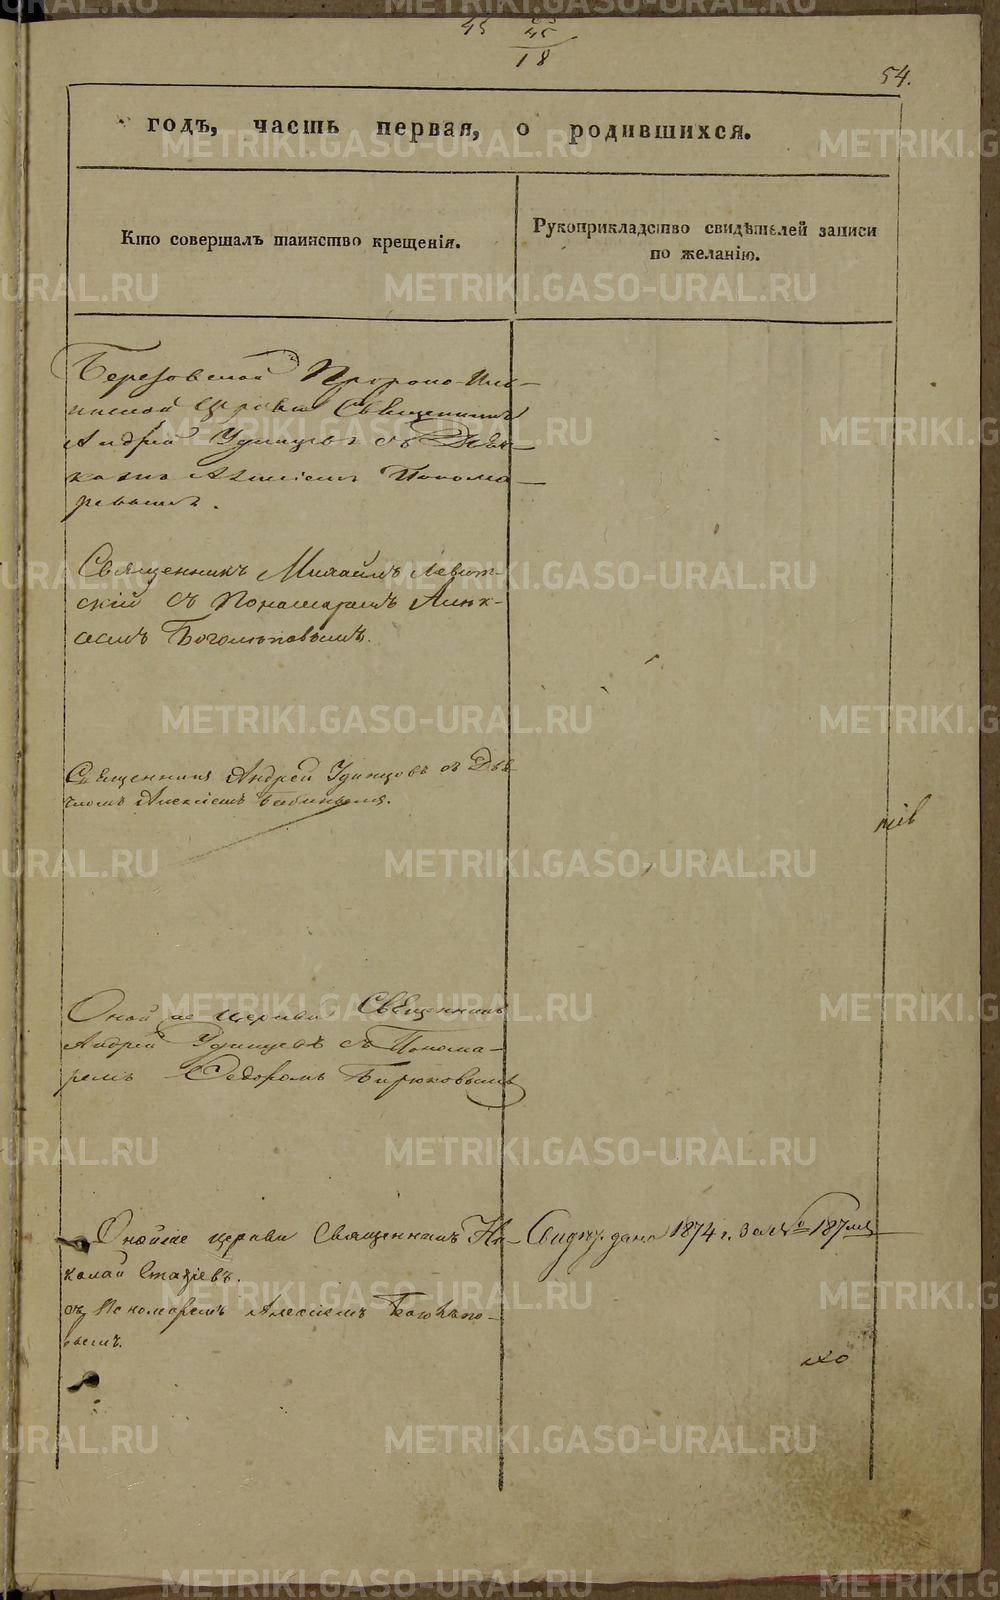 45 45
18
54.
годъ, часть первая, о родившихся.
Кто совершалъ таинство крещенія.
Рукоприкладство свидѣтелей записи
по желанію.
Березовской Пророко-Иль-
инской Церкви Священникъ
Андрей Удинцевъ съ Дьяч-
комъ Алексіемъ Понома-
ревымъ.
Священникъ Михаилъ Левит-
скій съ Пономаремъ Алек-
сѣемъ Боголюповымъ.
Священникъ Андрей Удинцовъ съ Дья
чкомъ Алексіемъ
Оной же Церкви Священникъ
Андрей Удинцевъ съ Понома-
ремъ Ѳедоромъ Бирюковымъ
Оной же церкви Священникъ Ни-
колай Стахіевъ.
съ Пономаремъ Алексіемъ
вымъ.
Свидѣт. дано 1874 г. За № 187
METRIKI.GASO-URAL.RU